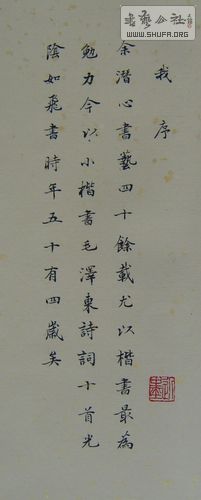 書藝公社
WWW.SHUFA.ORG
我序
余潛心書藝四十餘載尤以楷書最為
勉力今以小楷書毛澤東詩詞十首光
陰如飛書時年五十有四歲矣